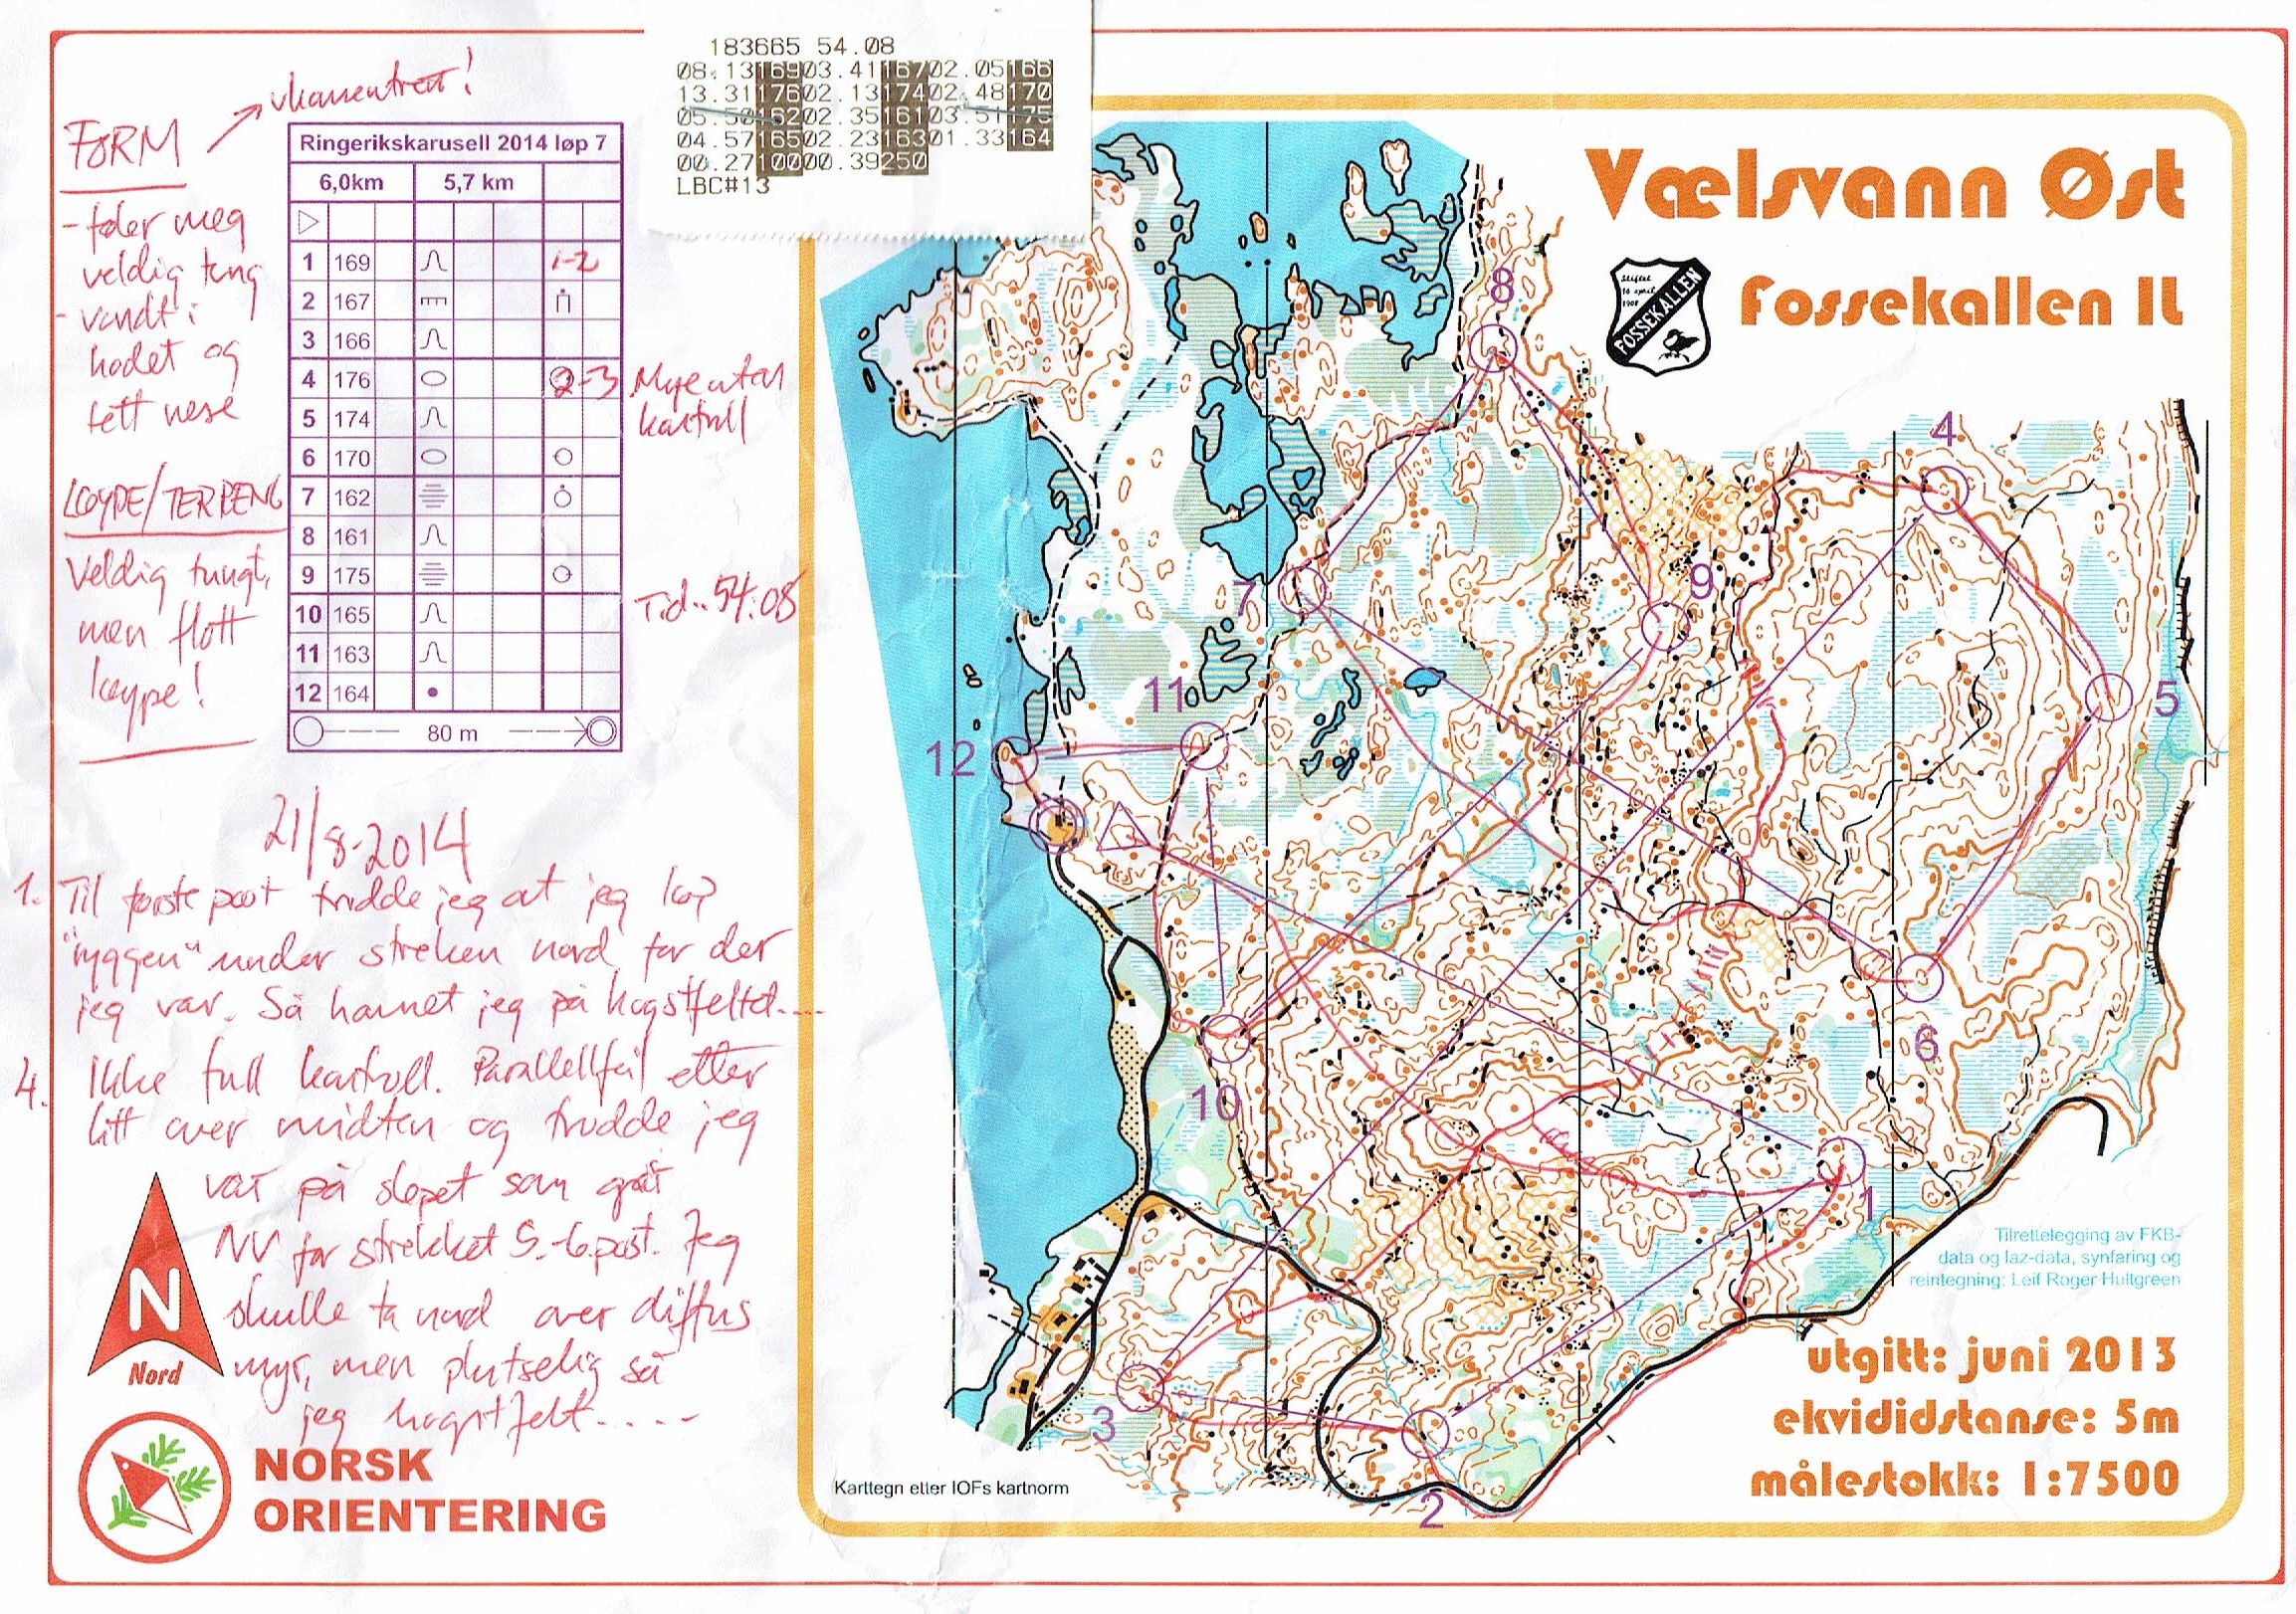 183665 54.08
08.13 169 03.41 167 02.05 166
13.31 176 02.13 174 02.48 170
05.50 162 02.35 161 03.51 175
04.57 165 02.23 163 01.33 164
00.27 100 00.39 250
LBC#13
FORM
- føler meg
veldig tung
- vondt i
hodet og
tett nese
LØYPE/TERRENG
Veldig tungt,
men flott
løype!
Ringerikskarusell 2014 løp 7
6,0km 5,7 km
1 169 1-2
2 167
3 166
4 176 2-3
5 174
6 170
7 162
8 161
9 175
10 165
11 163
12 164
80 m
Mye utan
kontroll
Tid.. 54:08
21/8-2014
1. Til første post trudde jeg at jeg løp
"ryggen" under streken nord for der
jeg var. Så havnet jeg på hogstfeltet....
4. Ikke full kontroll. Parallellfeil etter
litt over midten og trudde jeg
var på sløpet som går
NV for strekket 5.-6.post. Jeg
skulle ta nord over diffus
myr, men plutselig så
jeg hogstfelt.....
N
Nord
NORSK
ORIENTERING
Vælsvann Øst
Stiftet
16 april
1908
FOSSEKALLEN
Fossekallen IL
8
4
9
7
5
11
12
6
10
1
3
2
Tilrettelegging av FKB-
data og laz-data, synfaring og
reintegning: Leif Roger Hultgreen
utgitt: juni 2013
ekvididstanse: 5m
målestokk: 1:7500
Karttegn etter IOFs kartnorm